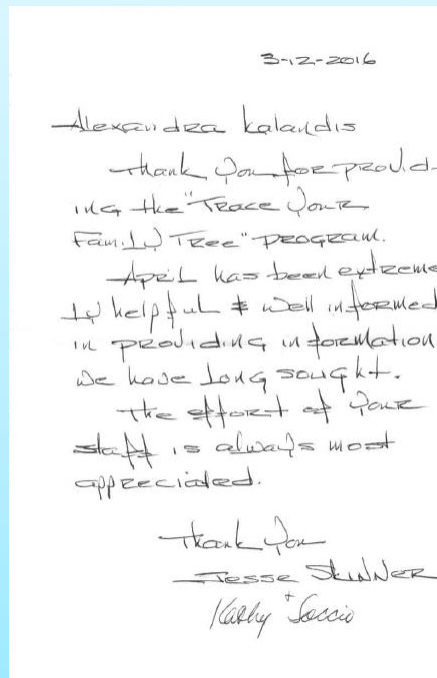 3-12-2016
Alexandra Kalandis
Thank you for provid-
ing the "Trace Your
Family Tree" program.
April has been extreme
ly helpful & well informed
in providing information
we have long sought.
The effort of your
staff is always most
appreciated.
Thank you
Jesse Skinner
+
Kathy Soccio